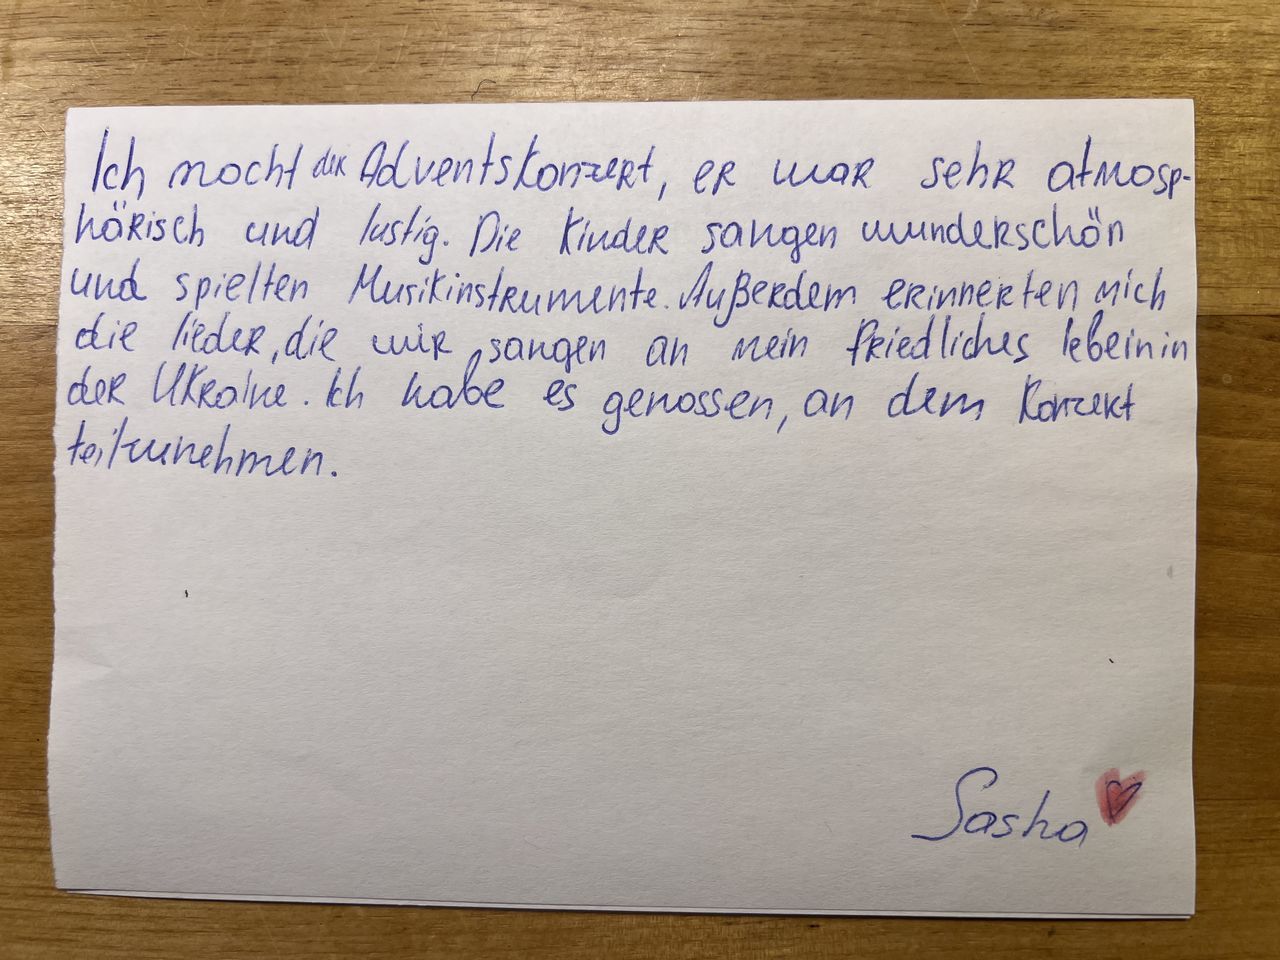 Ich mocht der Adventskonzert, er war sehr atmosp-
härisch und lustig. Die Kinder sangen wunderschön
und spielten Musikinstrumente. Außerdem erinnerten mich
die lieder, die wir sangen an mein friedliches lebein in
der Ukraine. Ich habe es genossen, an dem Konzert
teilzunehmen.
Sasha